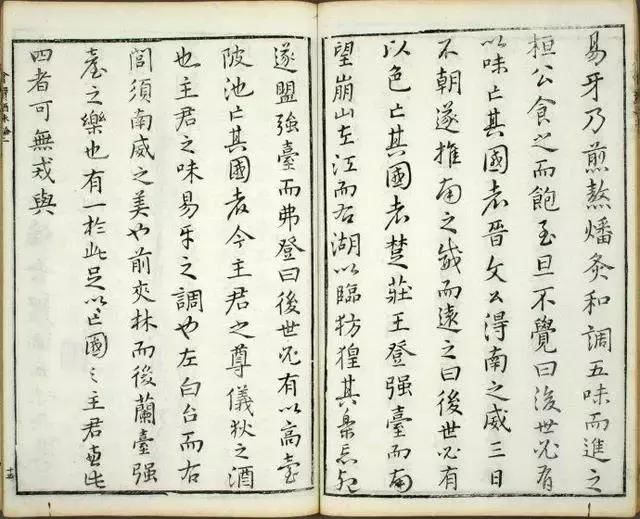 易牙乃煎熬燔炙和調五味而進之
桓公食之而飽至旦不覺曰後世必有
以味亡其國者晉文公得南之威三日
不朝遂推南之威而遠之曰後世必有
以色亡其國者楚莊王登强臺而南
望崩山左江而右湖以臨彷徨其樂忘死
遂盟强臺而弗登曰後世必有以高臺
陂池亡其國者今主君之尊儀狄之酒
也主君之味易牙之調也左白台而右
閭須南威之美也前夾林而後蘭臺强
臺之樂也有一於此足以亡國〻主君此
四者可無戒與